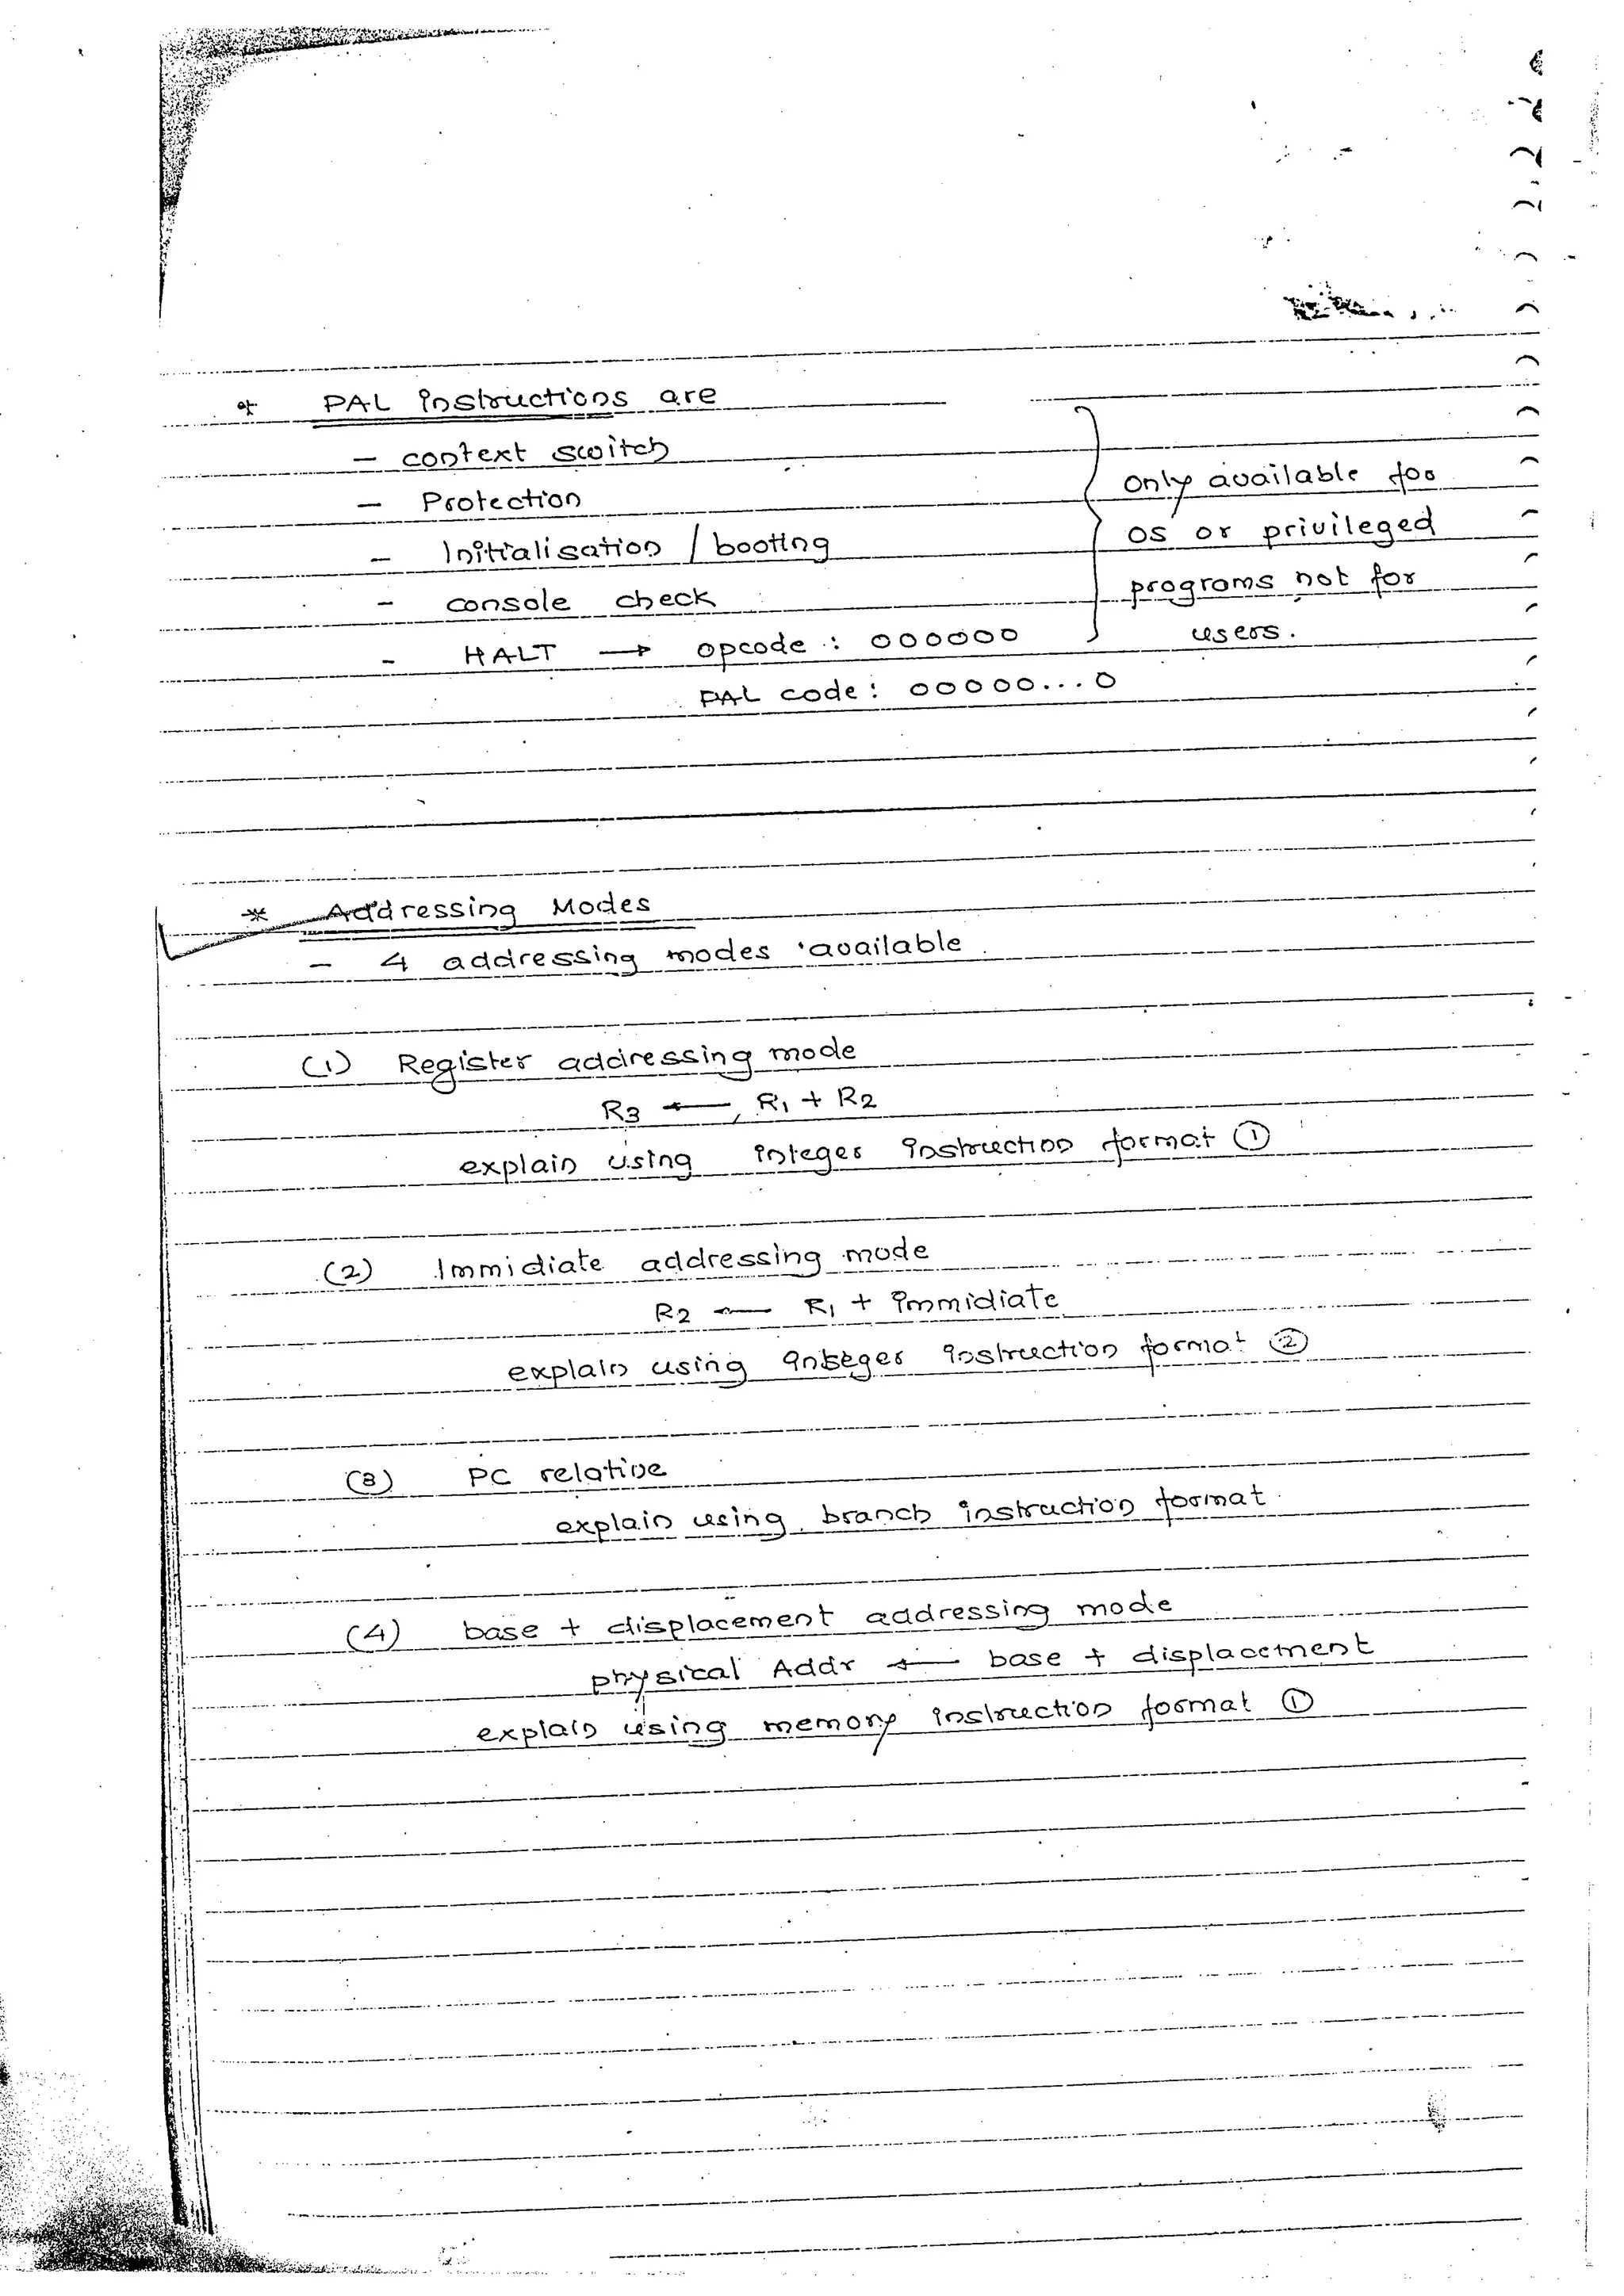 * PAL instructions are
- context switch
- Protection
- Initialisation / booting
- console check
- HALT → opcode : 000000
PAL code : 00000...0
only available for
OS or privileged
programs not for
users.
* Addressing Modes
- 4 addressing modes available
(1) Register addressing mode
R3 ← R1 + R2
explain using integer instruction format ①
(2) Immidiate addressing mode
R2 ← R1 + immidiate
explain using integer instruction format ②
(3) PC relative
explain using branch instruction format
(4) base + displacement addressing mode
physical Addr ← base + displacement
explain using memory instruction format ①